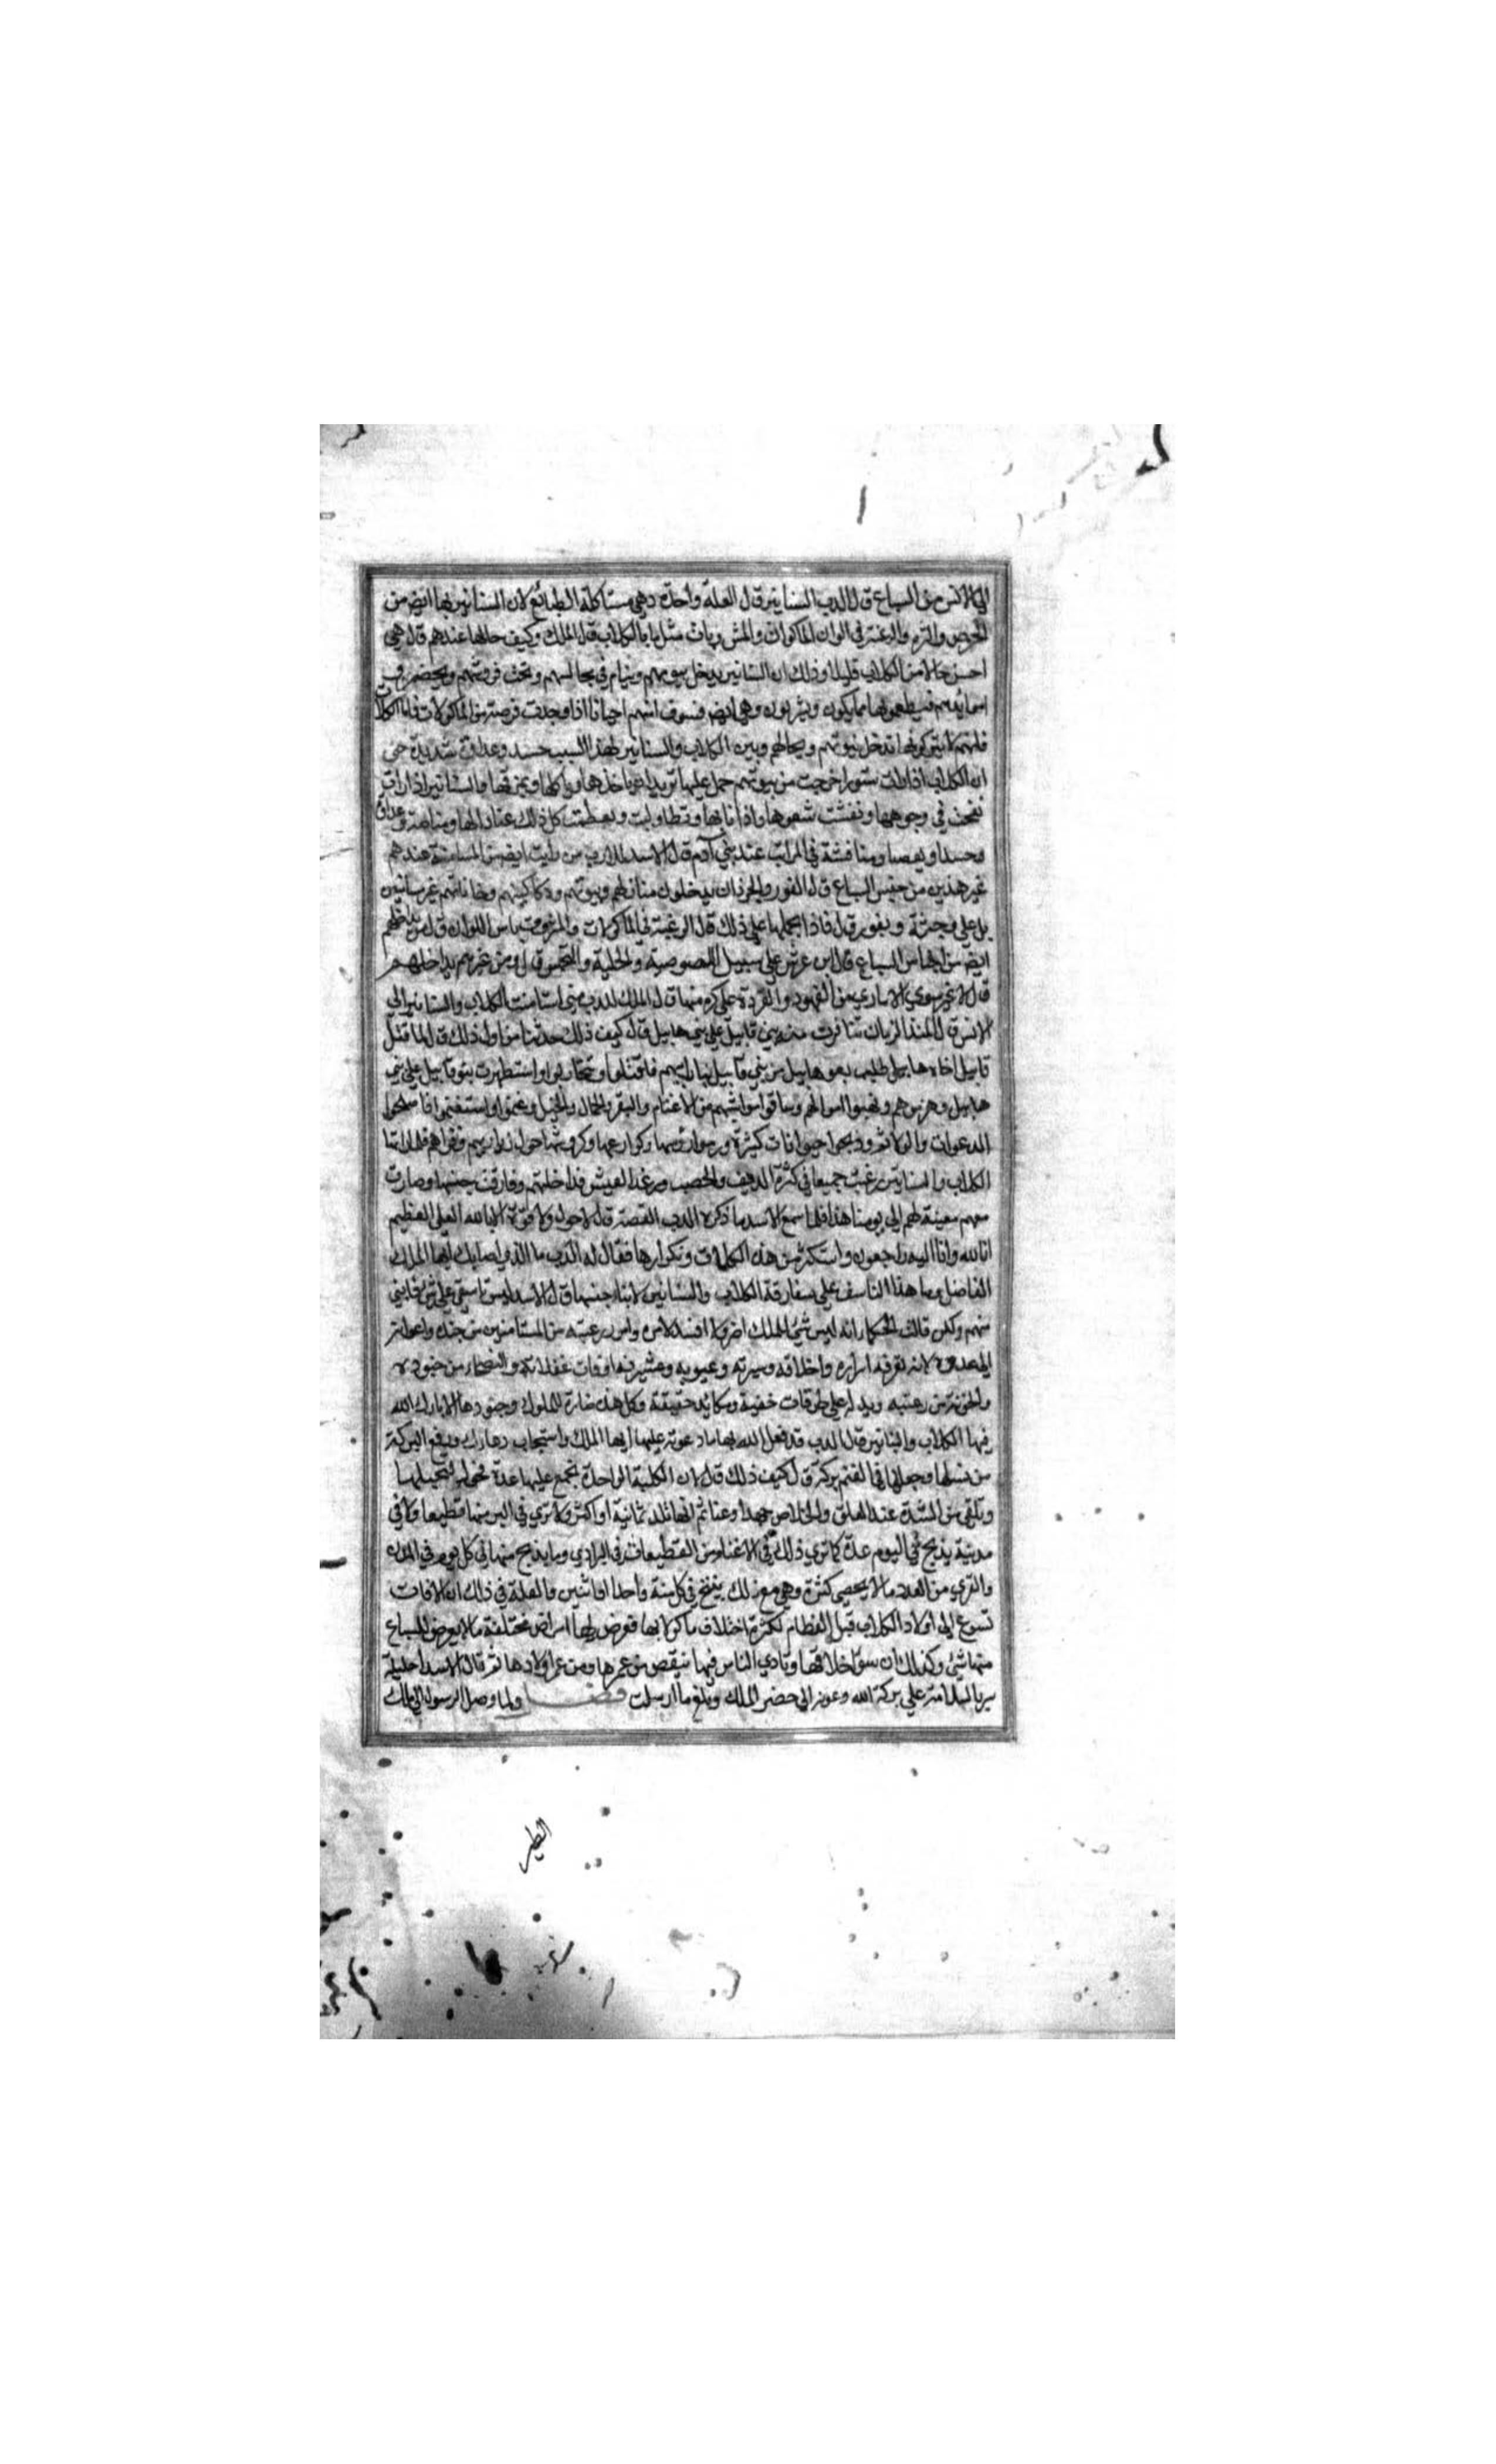 الي الانس من السباع قال الدب السنانير قال العلة واحدة وهي مشاكلة الطبائع لان السنانير بها ايضا من
الحرص والشره والرغبة في الوان الماكولات والمشروبات مثل ما بالكلاب قال الملك وكيف حالها عندهم قال هي
احسن حالا من الكلاب قليلا وذلك ان السنانير يدخل بيوتهم وينام في مجالسهم وتحت فروشهم ويحضر في
فيطعمونها مما ياكلون ويشربون وهي ايضا احيانا اذا وجدت فرصة من الماكولات فاما الكلاب
فانهم لا يتركونها تدخل بيوتهم ومجالهم وبين الكلاب والسنانير لهذا السبب حسد وعداوة شديدة حتى
ان الكلاب اذا رات سنورا خرجت من بيوتهم حمل عليها تريد ان ياخذها وياكلها ويمزقها والسنانير اذا رات
نفخت في وجوهها ونفشت شعورها واذنابها وتطاولت وتعظمت كل ذلك عنادا لها ومناصبة وعداوة
وحسدا وبغضا ومنافسة في المراتب عند بني آدم قال الاسد للدب من رايت ايضا من المستامنة عندهم
غير هذين من جنس السباع قال الفور والجرذان يدخلون منازلهم وبيوتهم ودكاكينهم وخاناتهم غير مستانسين
بل على وحشة ونفور قال فماذا يحملها على ذلك قال الرغبة في الماكولات والمشروبات من الالوان قال من يداخلهم
ايضا من اجناس السباع قال ابن عرس على سبيل اللصوصية والخلسة والتجسس قال ومن غيرهم يداخلهم
قال لا غير سوى الاسارى من الفهود والقردة على كره منها قال الملك للدب متى استامنت الكلاب والسنانير الي
الانس قال منذ الزمان تظافرت بني قابيل على بني هابيل قال كيف ذلك حدثنا من اول ذلك قال لما قتل
قابيل اخاه هابيل طلب بنو هابيل من بني قابيل بثار ابيهم فاقتتلوا وتحاربوا واستظهرت بنو قابيل على بني
هابيل وهزموهم ونهبوا اموالهم وساقوا مواشيهم من الاغنام والبقر والجمال والخيل وغنموا واستغنوا فاصلحوا
الدعوات والولائم وذبحوا حيوانات كثيرة ورموا رؤسها وكوارعها وكروشها حول ديارهم وقراهم فلما راتها
الكلاب والسنانير رغبت جميعا في كثرة الريف والخصب ورغد العيش فداخلتهم وفارقت جنسها وصارت
معهم معينة لهم الي يومنا هذا فلما سمع الاسد ما ذكره الدب القصة قال لا حول ولا قوة الا بالله العلي العظيم
انا لله وانا اليه راجعون واستكثر من هذه الكلمات وتكرارها فقال له الدب ما الذي اصابك ايها الملك
الفاضل وما هذا التاسف على مفارقة الكلاب والسنانير لابناء جنسها قال الاسد ليس تاسفي على شئ فاتني
منهم ولكن قالت الحكماء انه ليس شئ للملك اضر ولا افسد لامره وامر رعيته من المستامنين من جنده واعوانه
الي عدوه لانه يعرفه اسراره واخلاقه وسيرته وعيوبه اوقات غفلاته والنصحاء من جنوده
والخونة من رعيته ويدله على طرقات خفية ومكائد حقيقة وكل هذه ضارة للملوك وجنودها لا بارك الله
فيها الكلاب والسنانير قال الدب قد فعل الله بها ما دعوته عليها ايها الملك واستجاب دعاءك ورفع البركة
من نسلها وجعلها في الغنم بركة قال كيف ذلك قال لان الكلبة الواحدة يجمع عليها عدة فحولة لتحبيلها
وتلقى من الشدة عند العلق والخلاص جهدا وعناء ثم انها تلد ثمانية او اكثر ولا ترى في البر منها قطيعا ولا في
مدينة يذبح في اليوم عدة كما ترى ذلك في الاغنام من القطيعات في البراري وما يذبح منها في كل يوم في المدن
والقرى من العدد ما لا يحصى كثرة وهي مع ذلك ينتج في كل سنة واحدا او اثنين والعلة في ذلك ان الافات
تسرع الي اولاد الكلاب قبل الفطام لكثرة اختلاف ماكولاتها فعرض لها امراض مختلفة ما لا يعرض للسباع
منها شئ وكذلك ان سوء اخلاقها وتاذي الناس فيها ينقص من عمرها ومن عمر اولادها ثم قال الاسد لجليلة
سر بالسلامة على بركة الله وعونه الي حضرة الملك وبلغ ما ارسلت فصل ولما وصل الرسول الي ملك
الطير